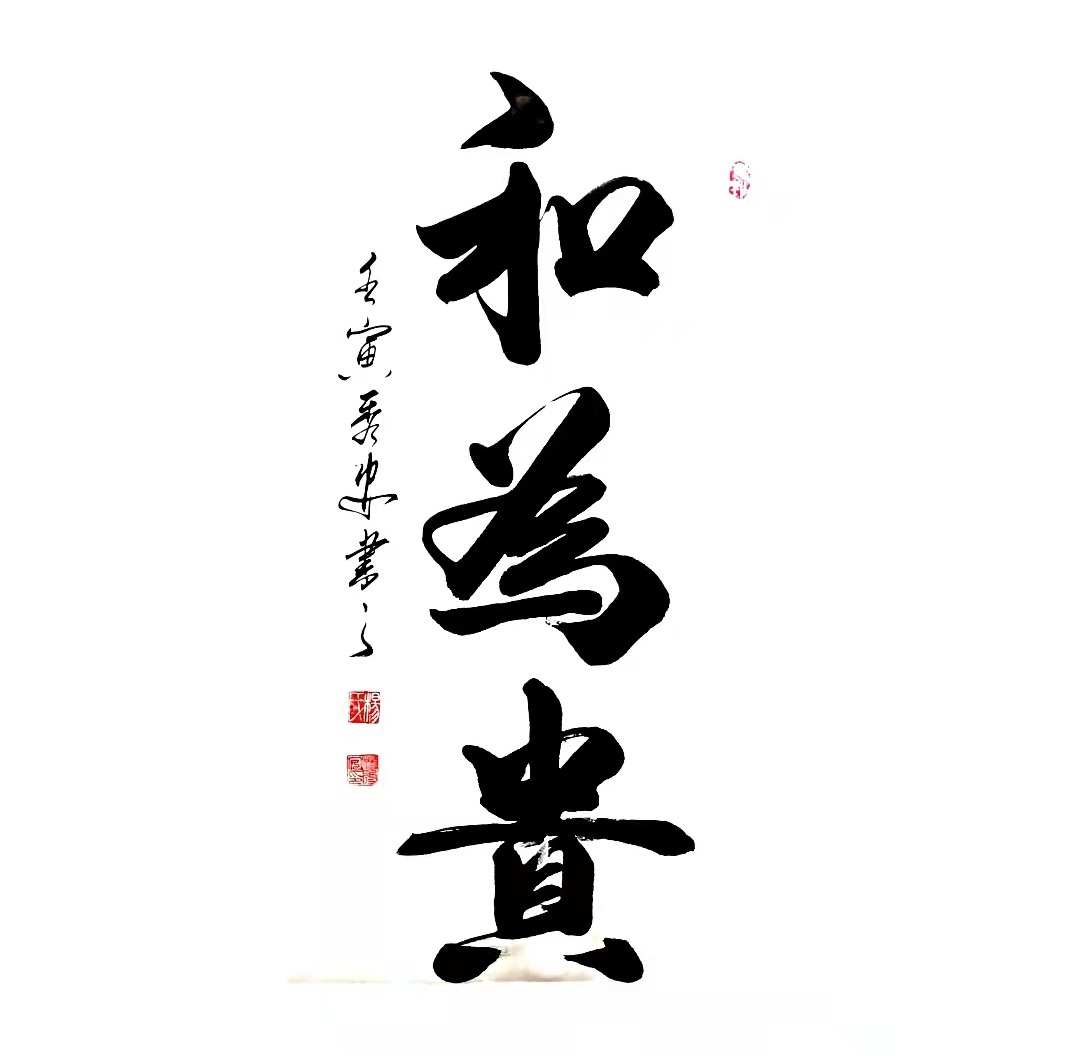 和為貴
壬寅秀忠業之